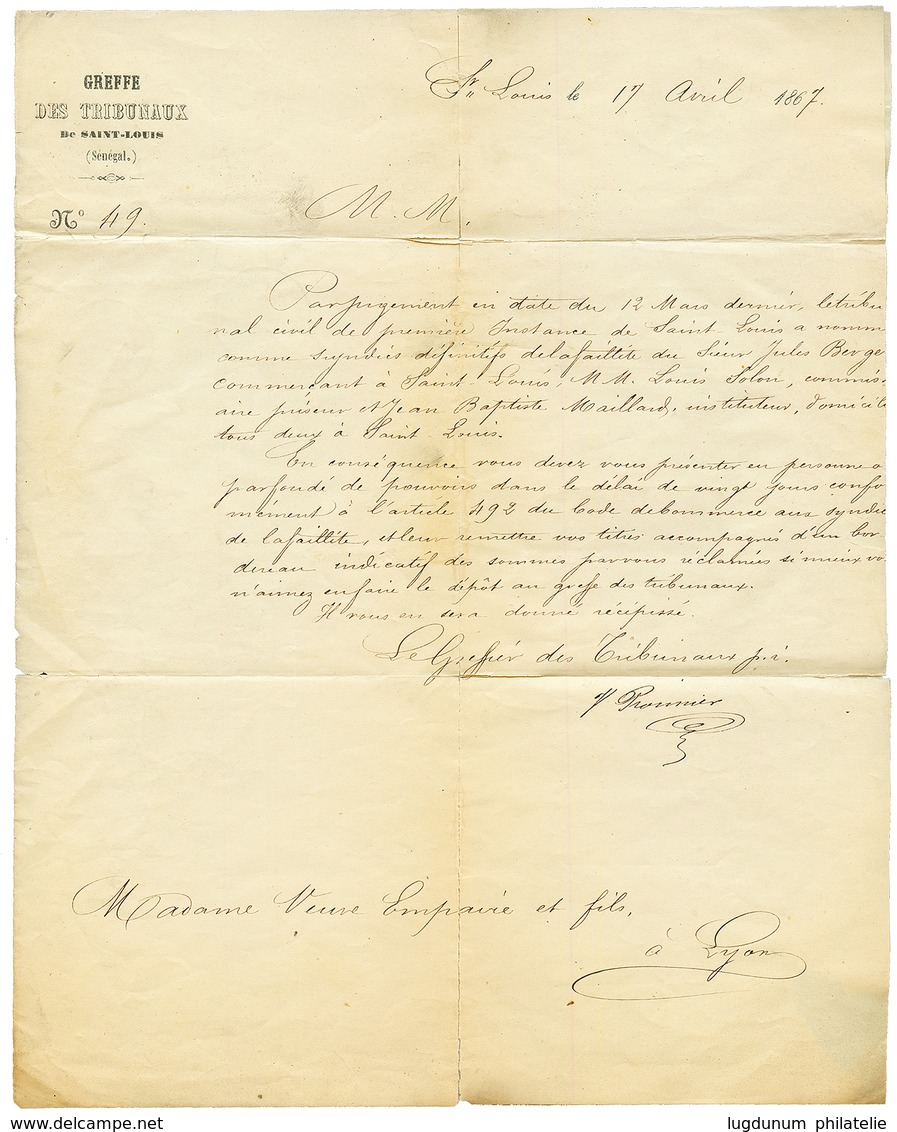 GREFFE
DES TRIBUNAUX
De SAINT-LOUIS
(Sénégal.)
St. Louis le 17 Avril 1867.
N° 49.
M. M.
Par jugement en date du 12 Mars dernier, le tribu
nal civil de première Instance de Saint-Louis a nomm
comme syndics définitifs de la faillite du Sieur Jules Berge
commerçant à Saint-Louis, M.M. Louis Solon, commis-
aire priseur et Jean Baptiste Maillard, instituteur, domicili
tous deux à Saint-Louis.
En conséquence vous devez vous présenter en personne o
par fondé de pouvoirs dans le délai de vingt jours confo
mément à l'article 492 du Code de commerce aux syndic
de la faillite, et leur remettre vos titres accompagnés d'un bor
dereau indicatif des sommes par vous réclamées si mieux vo
n'aimez en faire le dépôt au greffe des tribunaux.
Il vous en sera donné récépissé.
Le Greffier des Tribunaux p.i.
Madame Veuve Empaire et fils,
à Lyon
www.delcampe.net
lugdunum philatelie